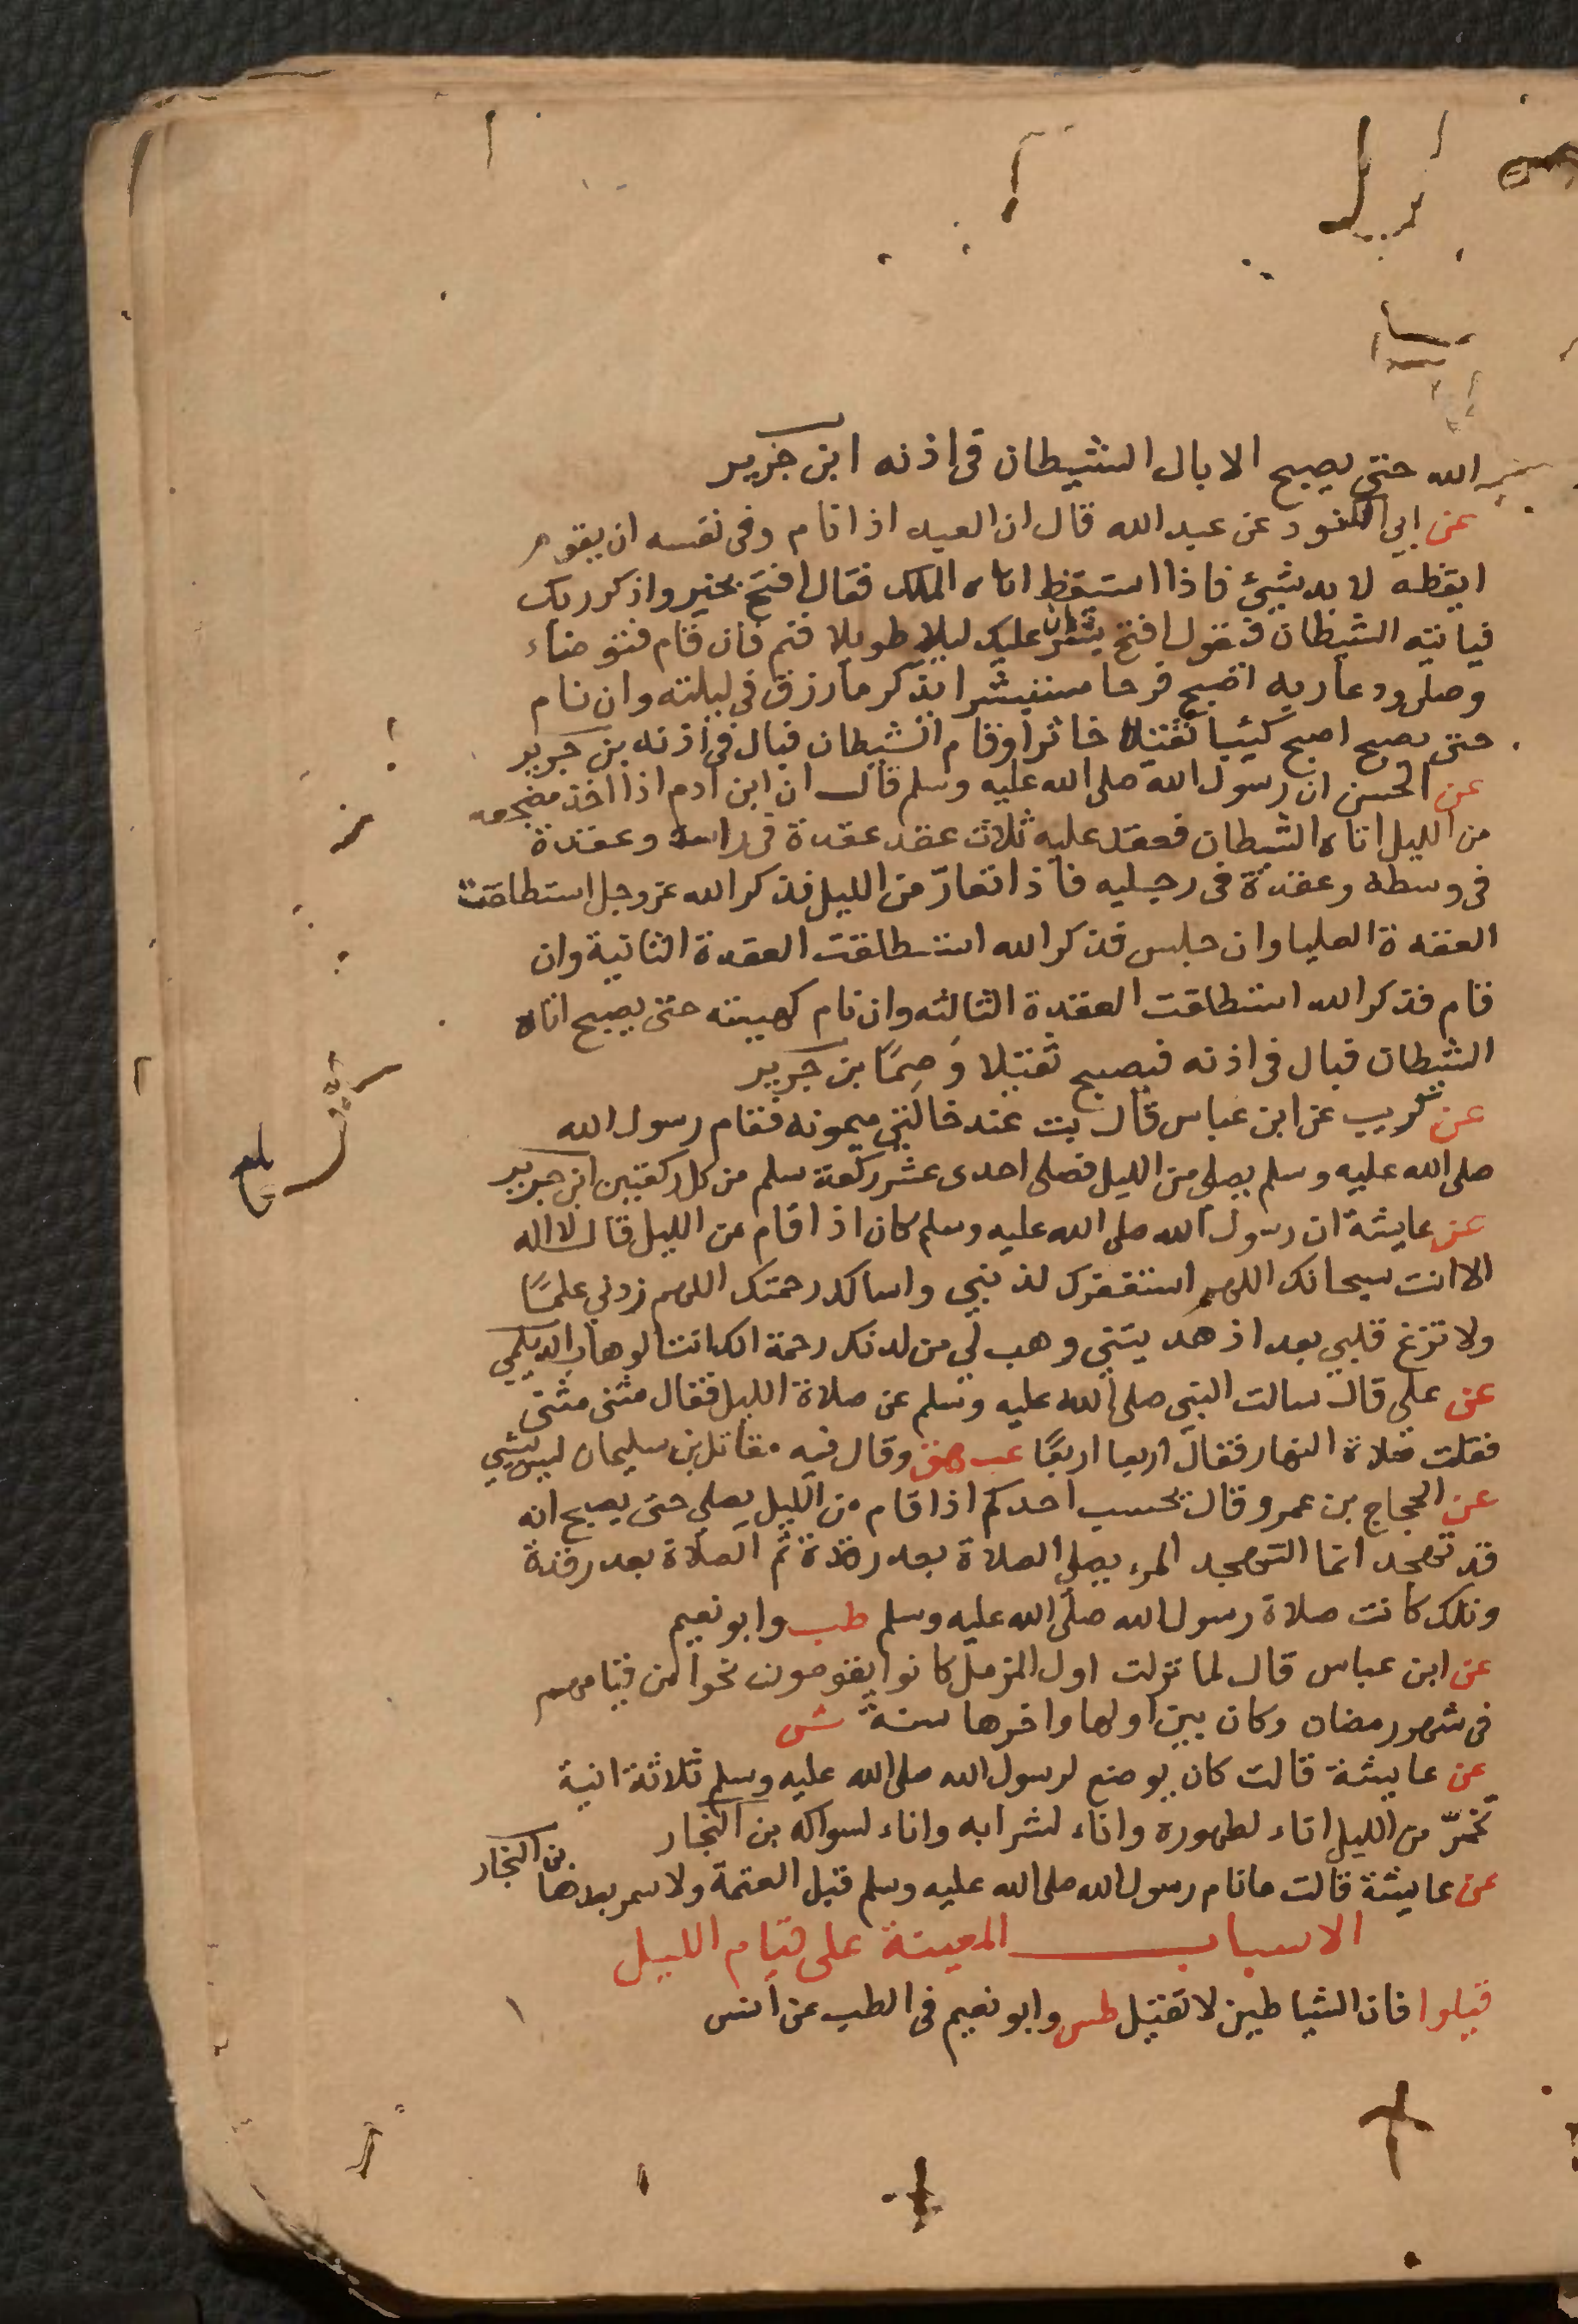 الله حتى يصبح الا بال الشيطان في اذنه ابن جرير
عن ابي الكنود عن عبد الله قال ان العبد اذا نام وفى نفسه ان يقوم
ايقظه لا بد شيئ فاذا استيقظ اتاه الملك فقال افتح بخير واذكر ربك
فياتيه الشيطان فيقول افتح بشر ان عليك ليلا طويلا فنم فان قام فتوضاء
وصلى ودعا ربه اصبح فرحا مستبشرا يذكر ما رزق في ليلته وان نام
حتى يصبح اصبح كئيبا ثقيلا خاثرا وقام الشيطان فبال في اذنه بن جرير
عن الحسن ان رسول الله صلى الله عليه وسلم قال ان ابن ادم اذا اخذ مضجعه
من الليل اتاه الشيطان فعقد عليه ثلاث عقد عقدة في راسه وعقدة
في وسطه وعقدة في رجليه فاذا تعارّ من الليل فذكر الله عز وجل استطلقت
العقدة العليا وان جلس فذكر الله استطلقت العقدة الثانية وان
قام فذكر الله استطلقت العقدة الثالثه وان نام كهيئته حتى يصبح اتاه
الشيطان فبال في اذنه فيصبح ثقيلا وَصِمًا بن جرير
عن كريب عن ابن عباس قال بت عند خالتي ميمونه فقام رسول الله
صلى الله عليه وسلم يصلي من الليل فصلى احدى عشر ركعة سلم من كل ركعتين ابن جرير
عن عايشة ان رسول الله صلى الله عليه وسلم كان اذا قام من الليل قال لا اله
الا انت سبحانك اللهم استغفرك لذنبي واسالك رحمتك اللهم زدني علمًا
ولا تزغ قلبي بعد اذ هديتني وهب لي من لدنك رحمة انك انت الوهاب الديلمي
عن علي قال سالت النبي صلى الله عليه وسلم عن صلاة الليل فقال مثنى مثنى
فقلت صلاة النهار فقال اربعا اربعًا عب وقال فيه مقاتل بن سليمان ليس بشيي
عن الحجاج بن عمرو قال بحسب احدكم اذا قام من الليل يصلي حتى يصبح انه
قد تهجد انما التهجد المرء يصلي الصلاة بعد رقدة ثم الصلاة بعد رقدة
وتلك كانت صلاة رسول الله صلى الله عليه وسلم طب وابو نعيم
عن ابن عباس قال لما نزلت اول المزمل كانوا يقومون نحوا من قيامهم
في شهر رمضان وكان بين اولها واخرها سنةً ش
عن عايشة قالت كان يوضع لرسول الله صلى الله عليه وسلم ثلاثة انية
تخمرّ من الليل اناء لطهوره واناء لشرابه واناء لسواكه بن النجار
عن عايشة قالت ما نام رسول الله صلى الله عليه وسلم قبل العتمة ولا سمر بعدها بن النجار
الاسباب المعينة على قيام الليل
قيلوا فان الشياطين لا تقيل طس وابو نعيم في الطب عن انس